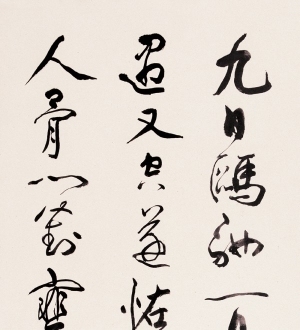 九日驅馳一日
遇又空還怪
人骨門對寒